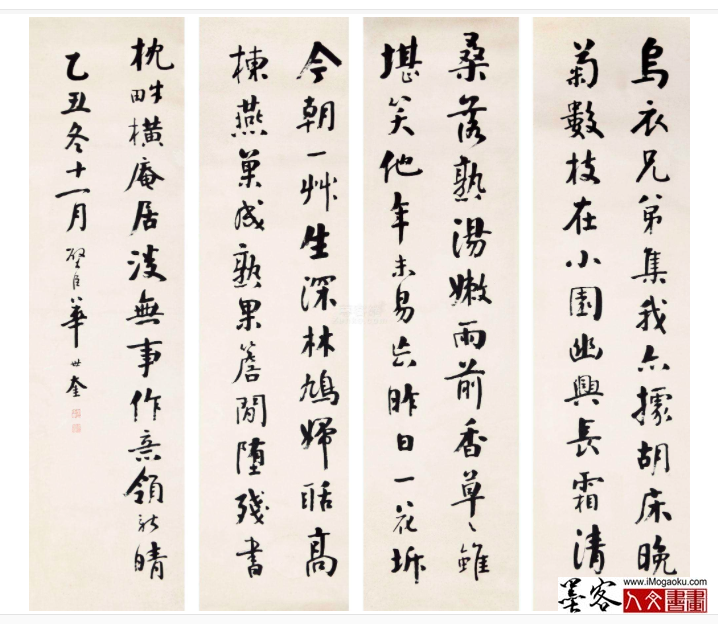 烏衣兄弟集我亦據胡床晚
菊數枝在小園幽興長霜清
桑落熟湯嫩雨前香草〻雖
堪笑他年未易忘昨日一花坼
今朝一艸生深林鳩婦聒高
棟燕巢成熟果簷間墮殘書
枕畔橫庵居淡無事作意領新晴
乙丑冬十一月 璧臣華世奎
墨客
www.iMogaoku.com
人文書畫